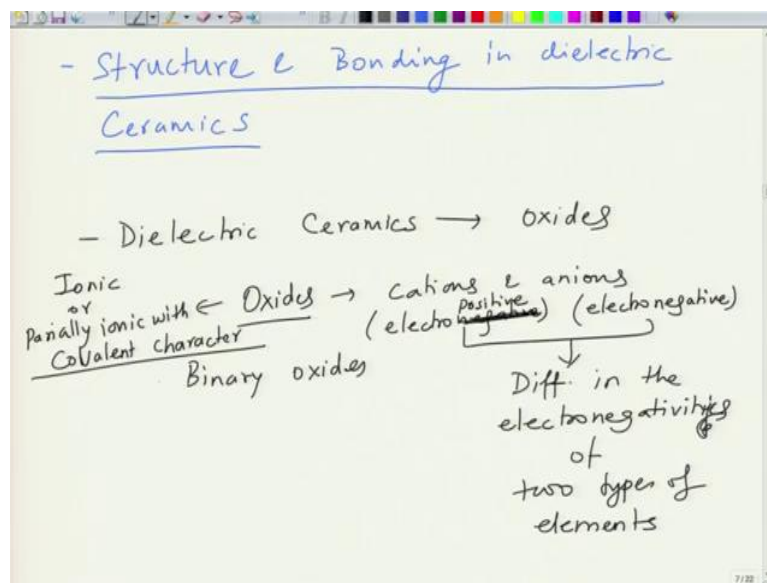 - Structure & Bonding in dielectric
Ceramics
- Dielectric Ceramics → oxides
Ionic
or
Parially ionic with ← Oxides → Cations & anions
Covalent character
(electropositive) (electronegative)
Binary oxides
Diff. in the
electronegativities
of
two types of
elements
7/22